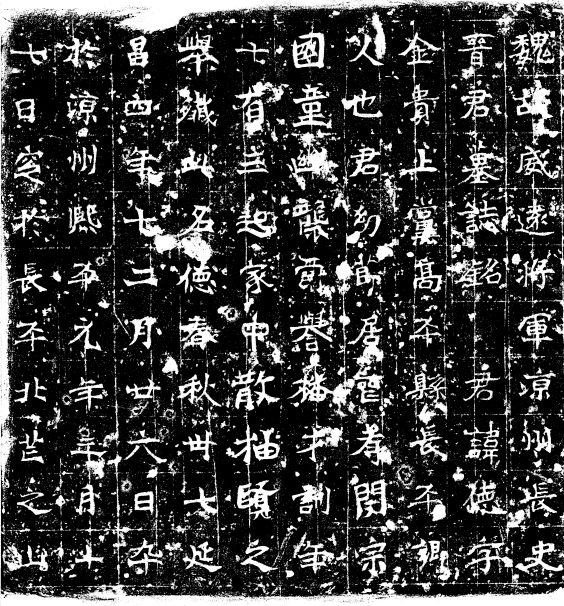 魏故威遠將軍涼州長史
晉君墓誌銘　君諱德字
金貴上黨高平縣長平鄉
人也君幼節居曾孝閔宗
國童幽襲譽播才訓年
十有三起家中散抽頤之
舉緘此名德春秋卅七延
昌四年十二月廿六日卒
於涼州熙平元年三月十
七日窆於長平北芒之山